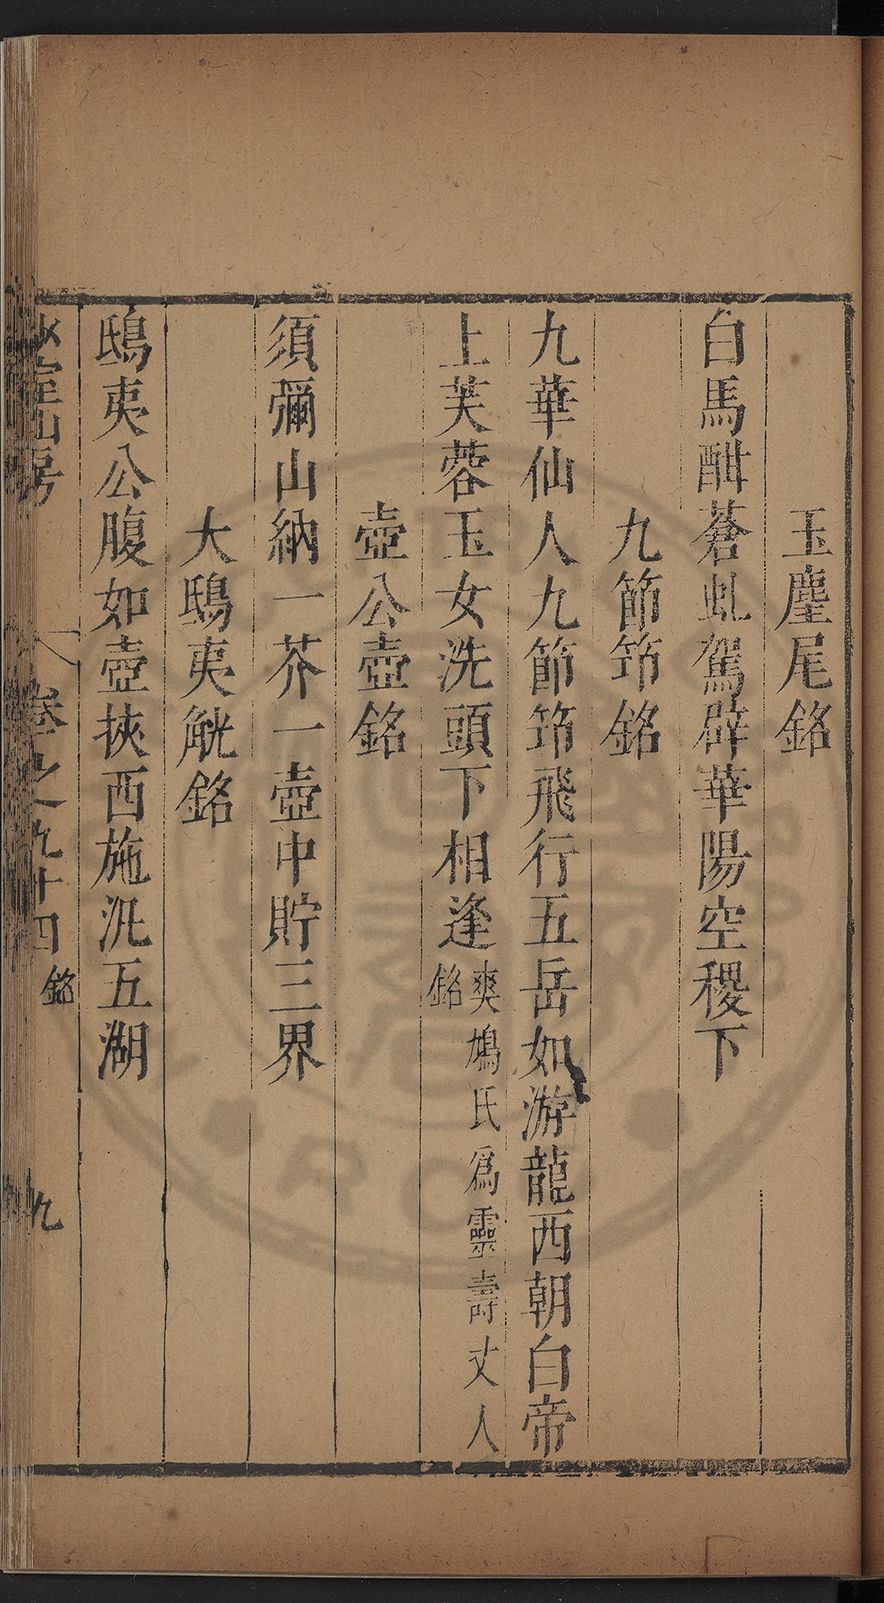 玉麈尾銘
白馬酣蒼虬駕辟華陽空稷下
九節筇銘
九華仙人九節筇飛行五岳如游龍西朝白帝
上芙蓉玉女洗頭下相逢
爽鳩氏爲靈壽丈人
銘
壺公壺銘
須彌山納一芥一壺中貯三界
大鴟夷觥銘
鴟夷公腹如壺挾西施汎五湖
山房 卷之九十四 銘 九